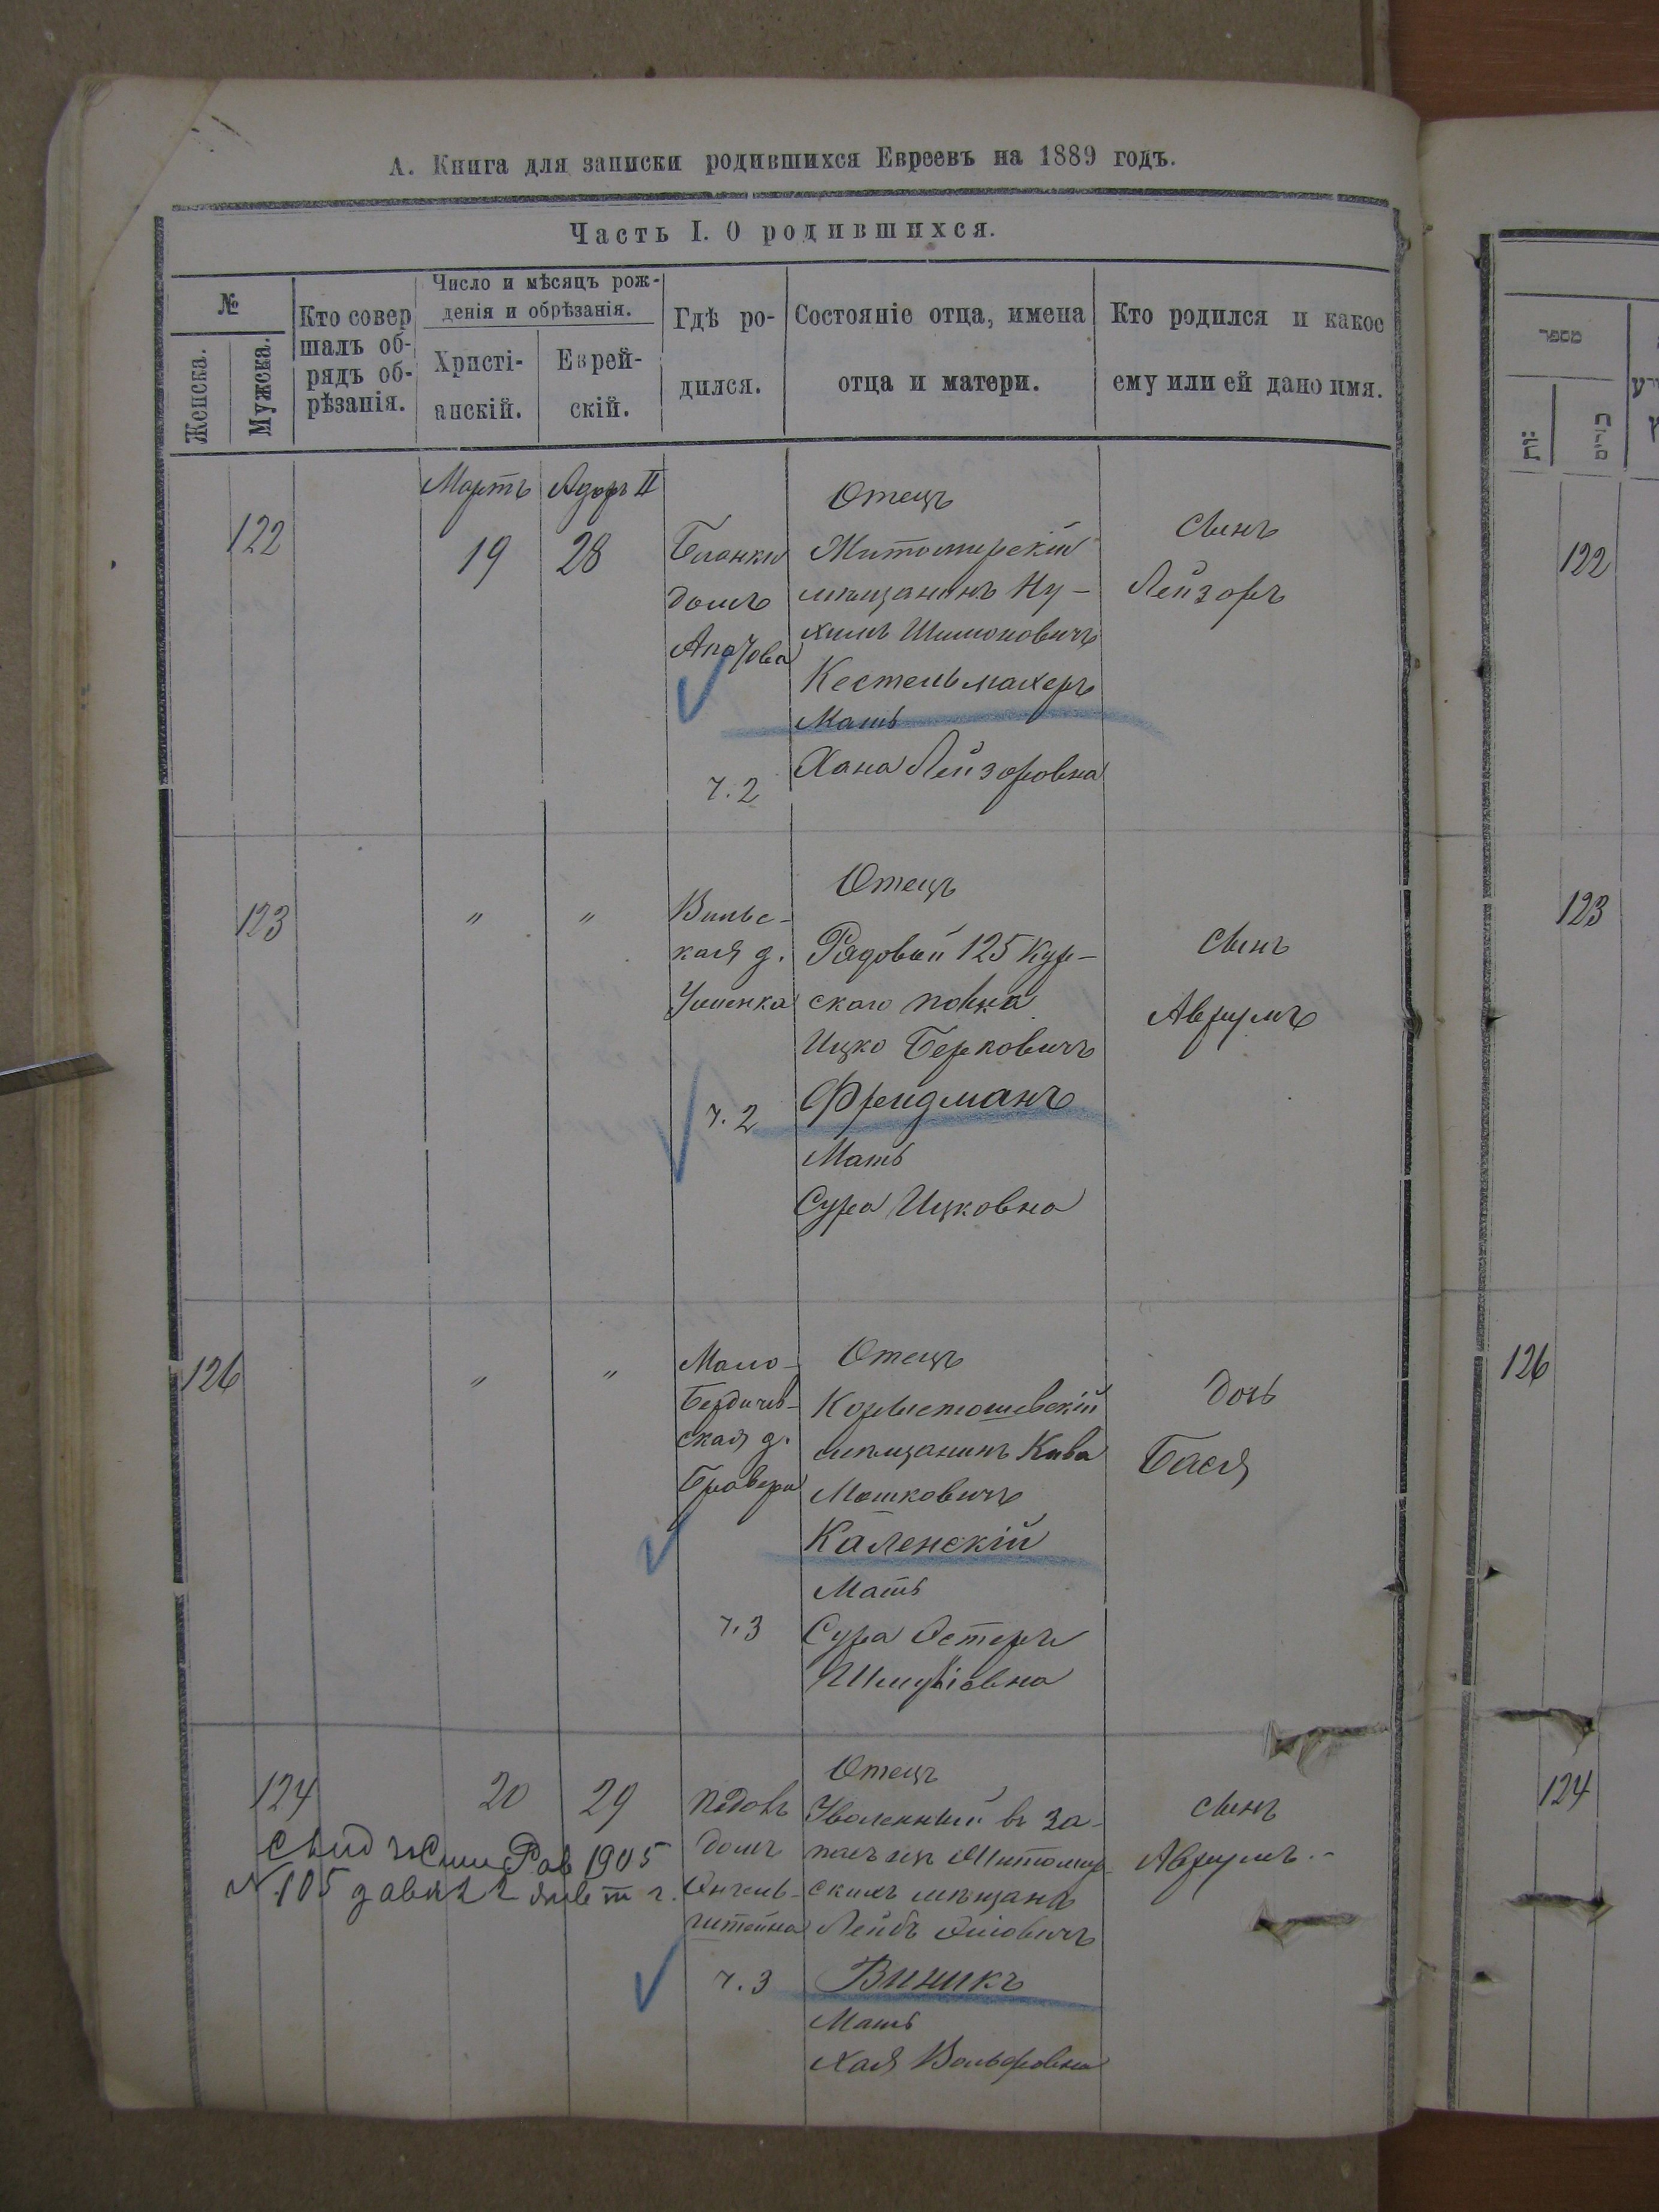 А. Книга для записки родившихся Евреевъ на 1889 годъ.
Часть I. О родившихся.
№
Женска.
Мужска.
Кто совер
шалъ об-
рядъ об-
рѣзанія.
Число и мѣсяцъ рож-
денія и обрѣзанія.
Христі-
анскій.
Еврей-
скій.
Гдѣ ро-
дился.
Состояніе отца, имена
отца и матери.
Кто родился и какое
ему или ей дано имя.
122
Мартъ
19
Адоръ II
28
домъ
ч. 2
Отецъ
Житомирскій
мѣщанинъ Ну-
химъ Шимоновичъ
Кестельмахеръ
Мать
Хана Лейзоровна
Сынъ
Лейзоръ
123
"
"
Вильс-
кая д.
Уменка
ч. 2
Отецъ
Рядовой 125 Кур-
скаго полка
Ицко Берковичъ
Фридманъ
Мать
Сура Ицковна
Сынъ
Аврумъ
126
"
"
Мало-
Бердичев-
ская д.
Бравера
ч. 3
Отецъ
Коростышевскій
мѣщанинъ Кива
Мошковичъ
Каленскій
Мать
Сура Эстеръ
Шмулiовна
Дочь
Бася
124
20
29
домъ
Енгель-
штейна
ч. 3
Отецъ
Уволенный въ за-
пасъ изъ Житомир-
скихъ мѣщанъ
Лейбъ
Виникъ
Мать
Хая Вольфовна
Сынъ
Аврумъ.-
1905
№ 105
מספר
122
123
126
124